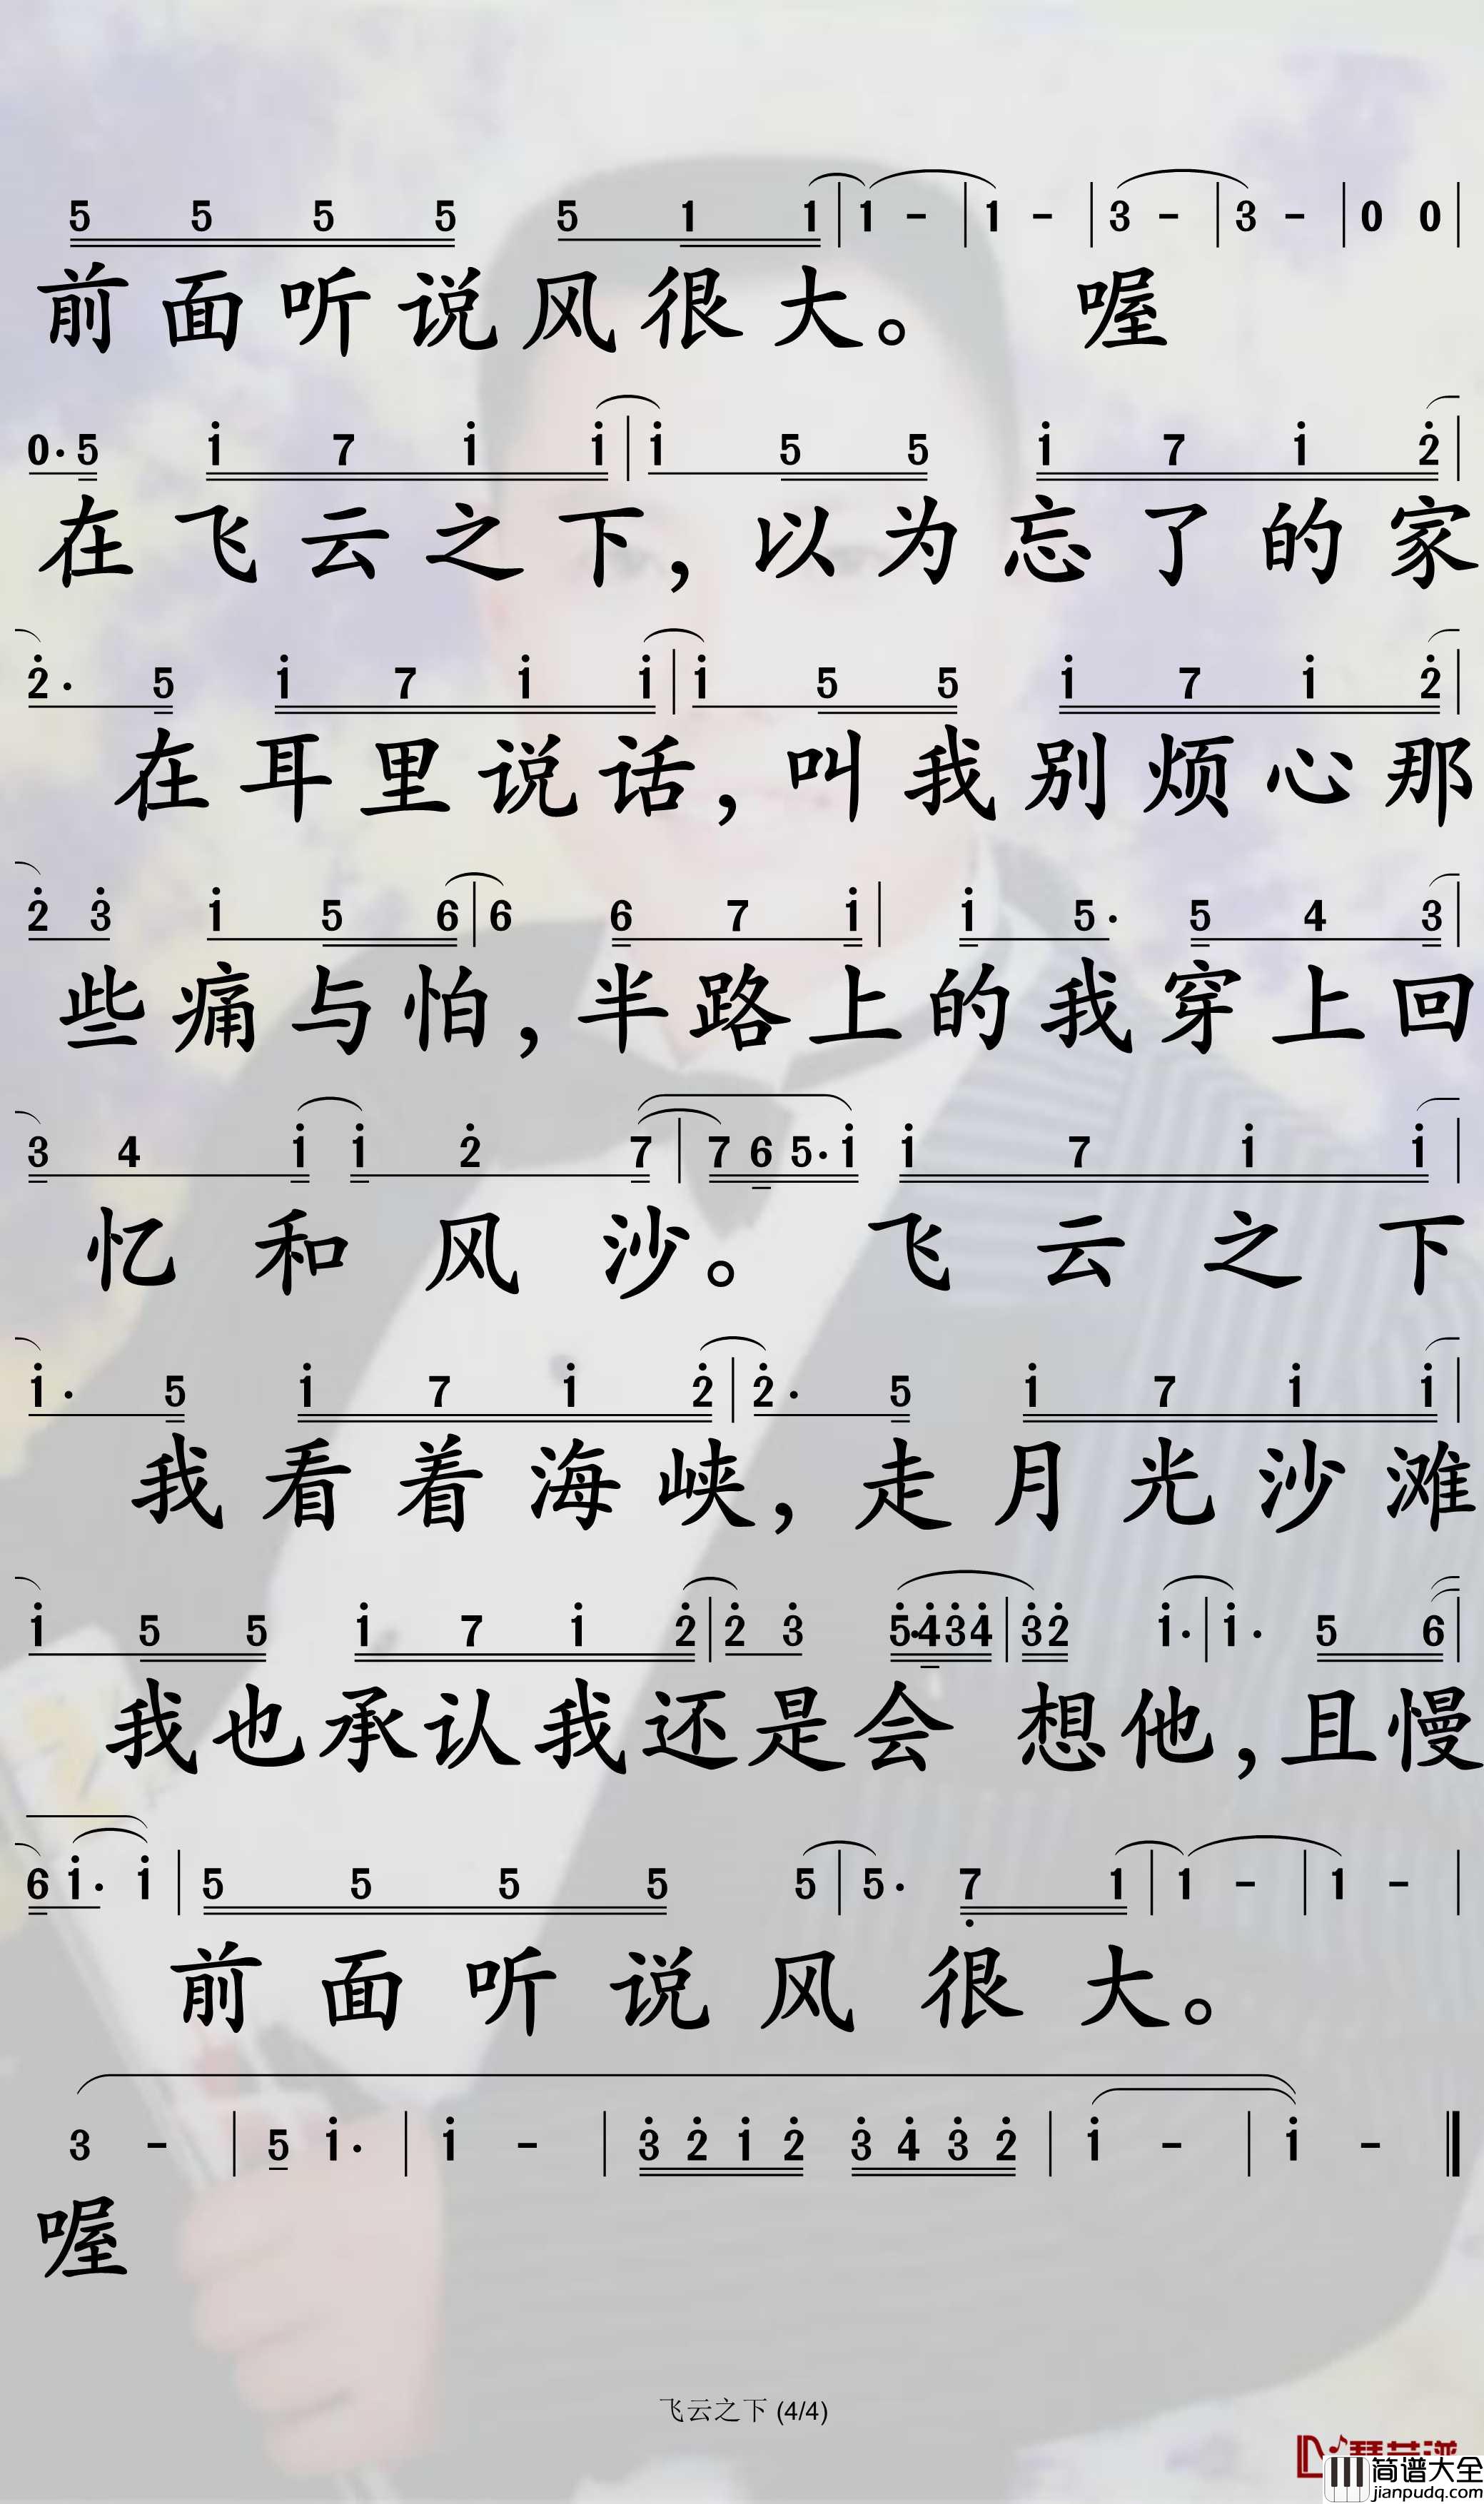 5 5 5 5 5 1 1 | 1 - | 1 - | 3 - | 3 - | 0 0 |
前面听说风很大。 喔
0· 5 i 7 i i | i 5 5 i 7 i 2̇ |
在飞云之下, 以为忘了的家
2̇· 5 i 7 i i | i 5 5 i 7 i 2̇ |
在耳里说话, 叫我别烦心那
2̇ 3̇ i 5 6 | 6 6 7 i | i 5· 5 4 3 |
些痛与怕, 半路上的我穿上回
3 4 i i 2̇ 7 | 7 6 5· i i 7 i i |
忆和风沙。 飞云之下
i· 5 i 7 i 2̇ | 2̇· 5 i 7 i i |
我看着海峡, 走月光沙滩
i 5 5 i 7 i 2̇ | 2̇ 3̇ 5̇· 4̇ 3̇ 4̇ | 3̇ 2̇ i· | i· 5 6 |
我也承认我还是会 想他, 且慢
6 i· i | 5 5 5 5 5 | 5· 7̣ 1 | 1 - | 1 - |
前面听说风很大。
3 - | 5 i· | i - | 3̇ 2̇ i 2̇ 3̇ 4̇ 3̇ 2̇ | i - | i - ‖
喔
飞云之下 (4/4)
简谱大全
jianpudq.com